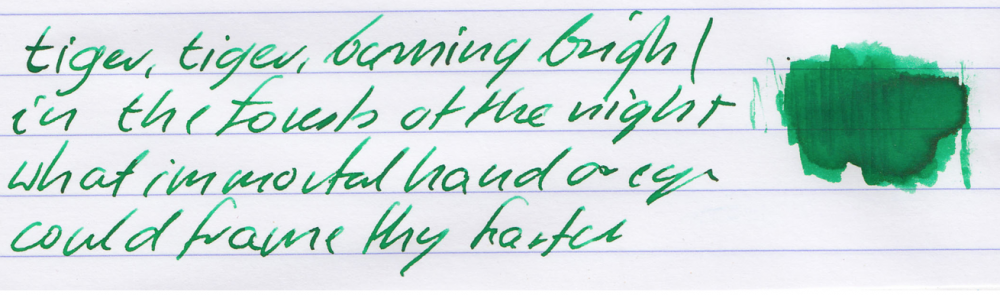 tiger, tiger, burning bright
in the forests of the night
what immortal hand or eye
could frame thy